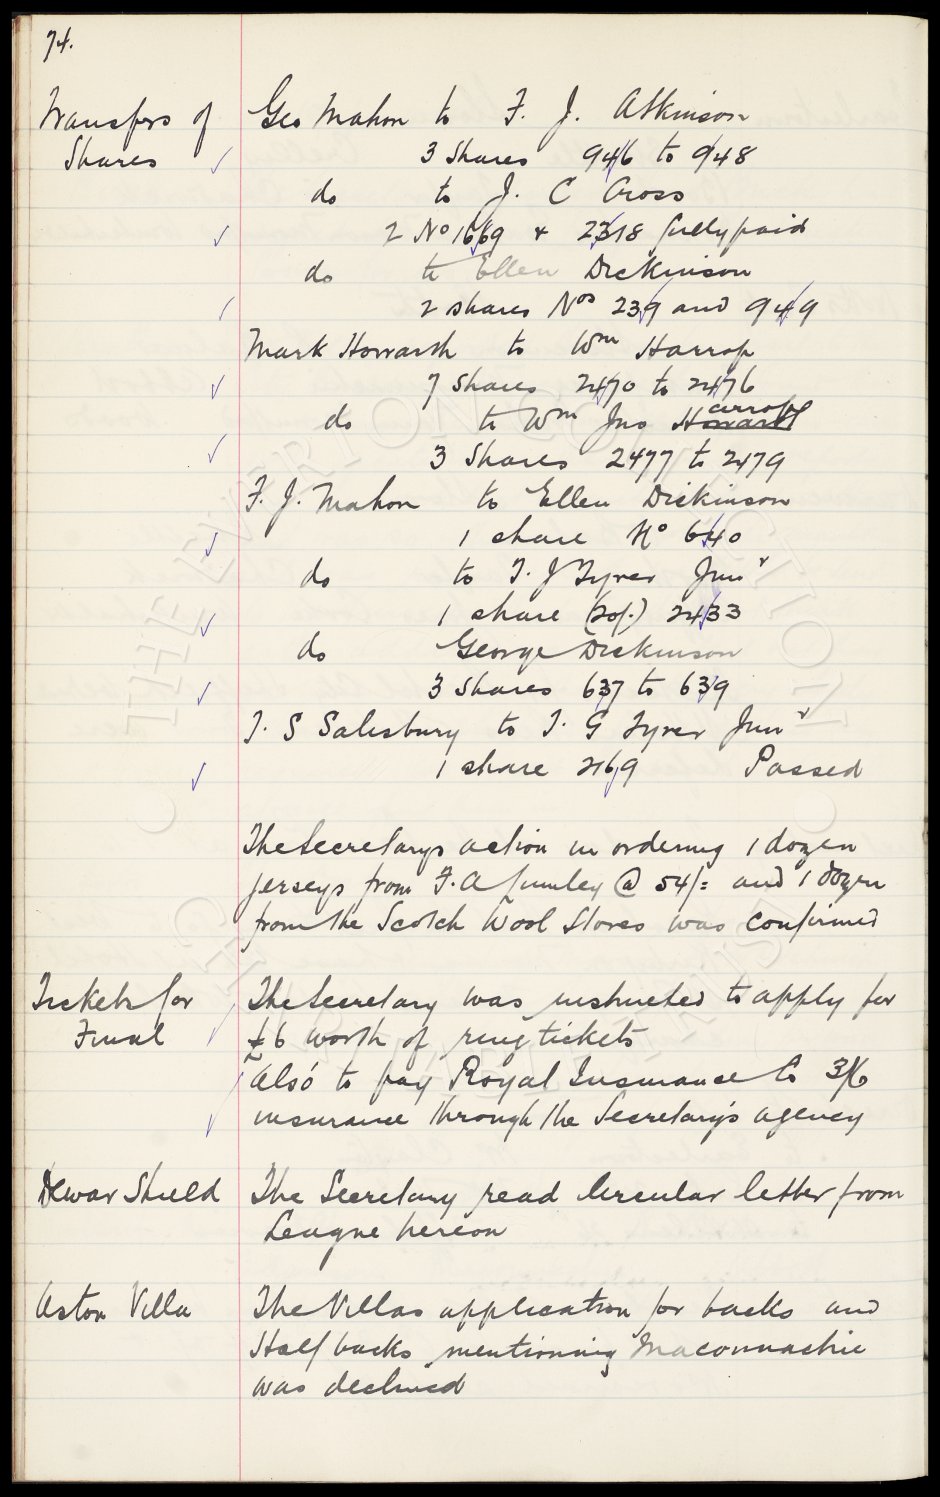 74.
Transfers of Shares
Geo Mahon to F. J. Atkinson
3 Shares 946 to 948
do to J. C Cross
2 No 1669 & 2318 fully paid
do to Ellen Dickinson
2 shares Nos 239 and 949
Mark Howarth to Wm Harrop
7 Shares 2470 to 2476
do to Wm Jno Harrop
3 Shares 2477 to 2479
F. J. Mahon to Ellen Dickinson
1 share No 640
do to T. J Tyrer Junr
1 share (20/-) 2433
do George Dickinson
3 Shares 637 to 639
T. S Salisbury to T. G Tyrer Junr
1 share 2169 Passed
The Secretarys action in ordering 1 dozen
jerseys from F. A @ 54/= and 1 dozen
from the Scotch Wool Stores was confirmed
Tickets for Final
The Secretary was instructed to apply for
£6 worth of ring tickets
Also to pay Royal Insurance Co 3/6
insurance through the Secretary's agency
Dewar Shield
The Secretary read Circular letter from
League hereon
Aston Villa
The Villas application for backs and
Half backs mentioning Maconnachie
was declined
THE EVERTON COLLECTION
CHARITABLE TRUST